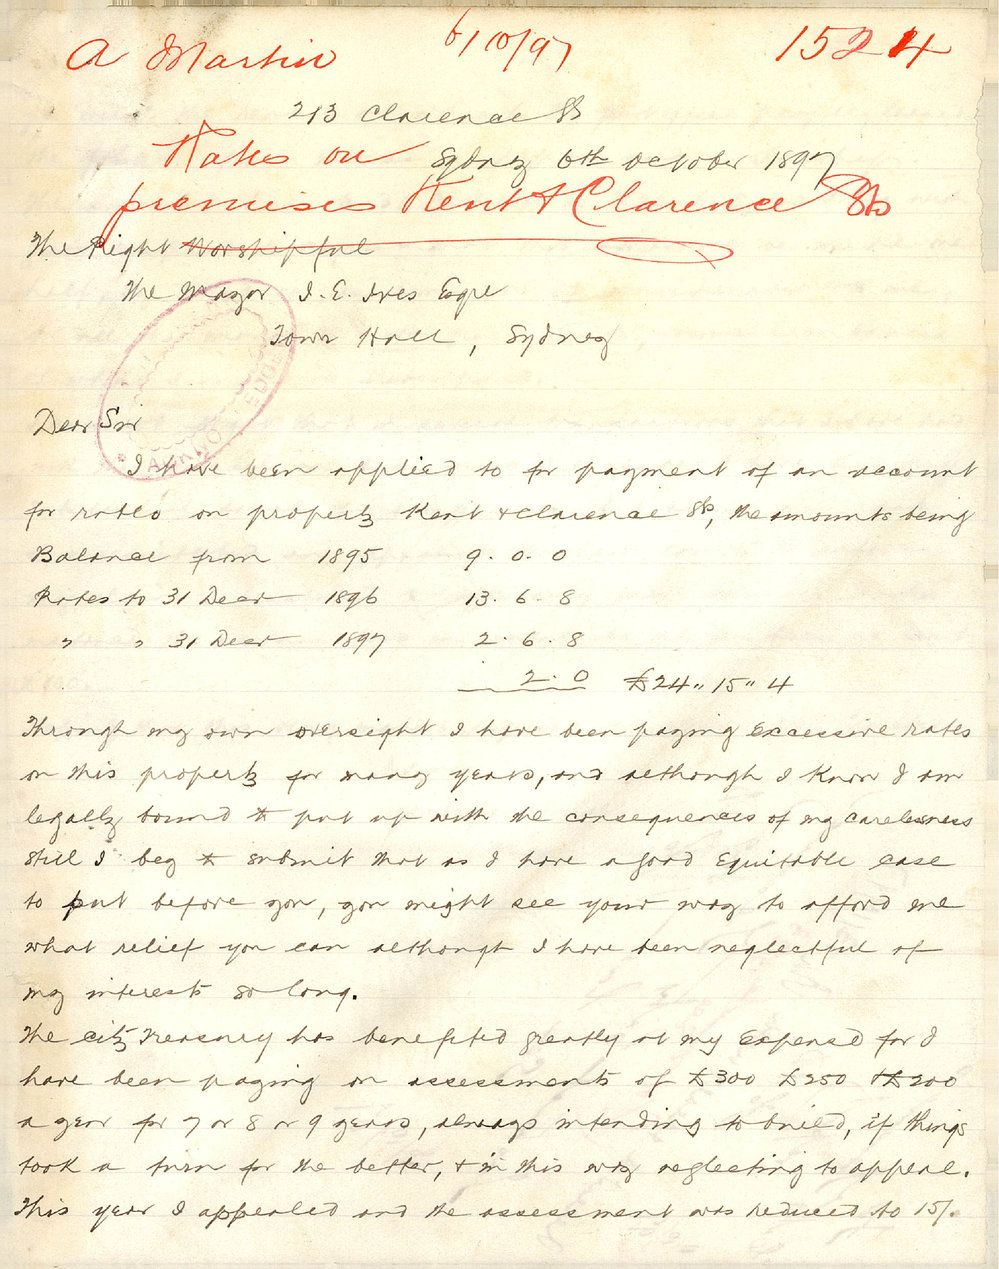 A Martin 6/10/97 1524
213 Clarence St
Rates on Sydney 6th October 1897
premises Kent & Clarence Sts
The Right Worshipful
The Mayor I. E. Ives Esqre
Town Hall, Sydney
ACKNOWLEDGED
Dear Sir
I have been applied to for payment of an account
for rates on property Kent & Clarence Sts, the amounts being
Balance from 1895 9. 0. 0
Rates to 31 Decr 1896 13. 6. 8
" " 31 Decr 1897 2. 6. 8
2. 0 £24" 15" 4
Through my own oversight I have been paying excessive rates
on this property for many years, and although I know I am
legally bound to put up with the consequences of my carelessness
still I beg to submit that as I have a good equitable case
to put before you, you might see your way to afford me
what relief you can although I have been neglectful of
my interests so long.
The city Treasury has benefited greatly at my expense for I
have been paying on assessments of £300 £250 & £200
a year for 7 or 8 or 9 years, always intending to build, if things
took a turn for the better, & in this way neglecting to appeal.
This year I appealed and the assessment was reduced to 15/.